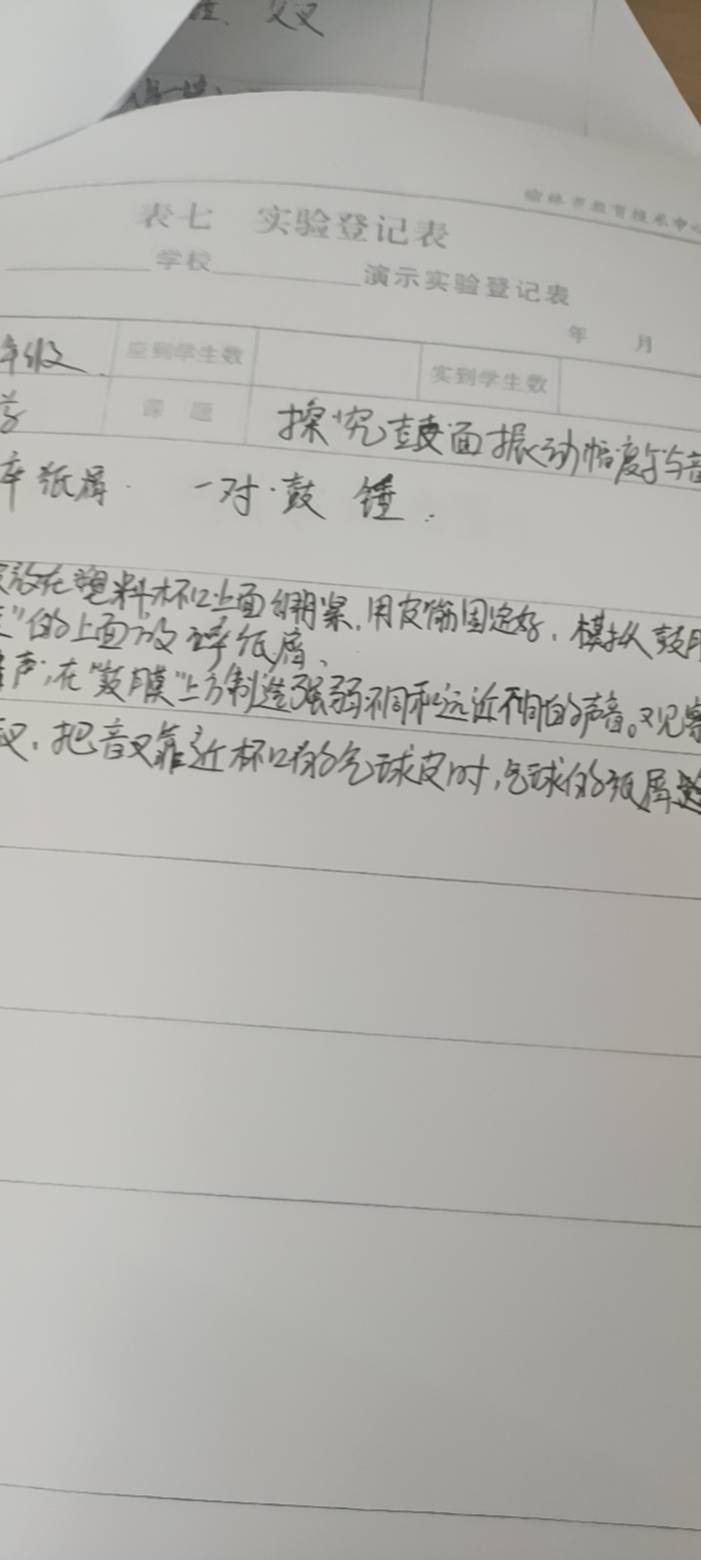 榆林市教育技术中心
表七 实验登记表
学校 演示实验登记表
年 月
年级 应到学生数 实到学生数
学 课题 探究鼓面振动幅度与音
碎纸屑. 一对·鼓锤.
放在塑料杯口上面绷紧,用皮筋固定好,模拟鼓
"的上面放碎纸屑、
声,在"鼓膜"上方制造强弱不同和远近不同的声音。观察
叉,把音叉靠近杯口的气球皮时,气球的纸屑